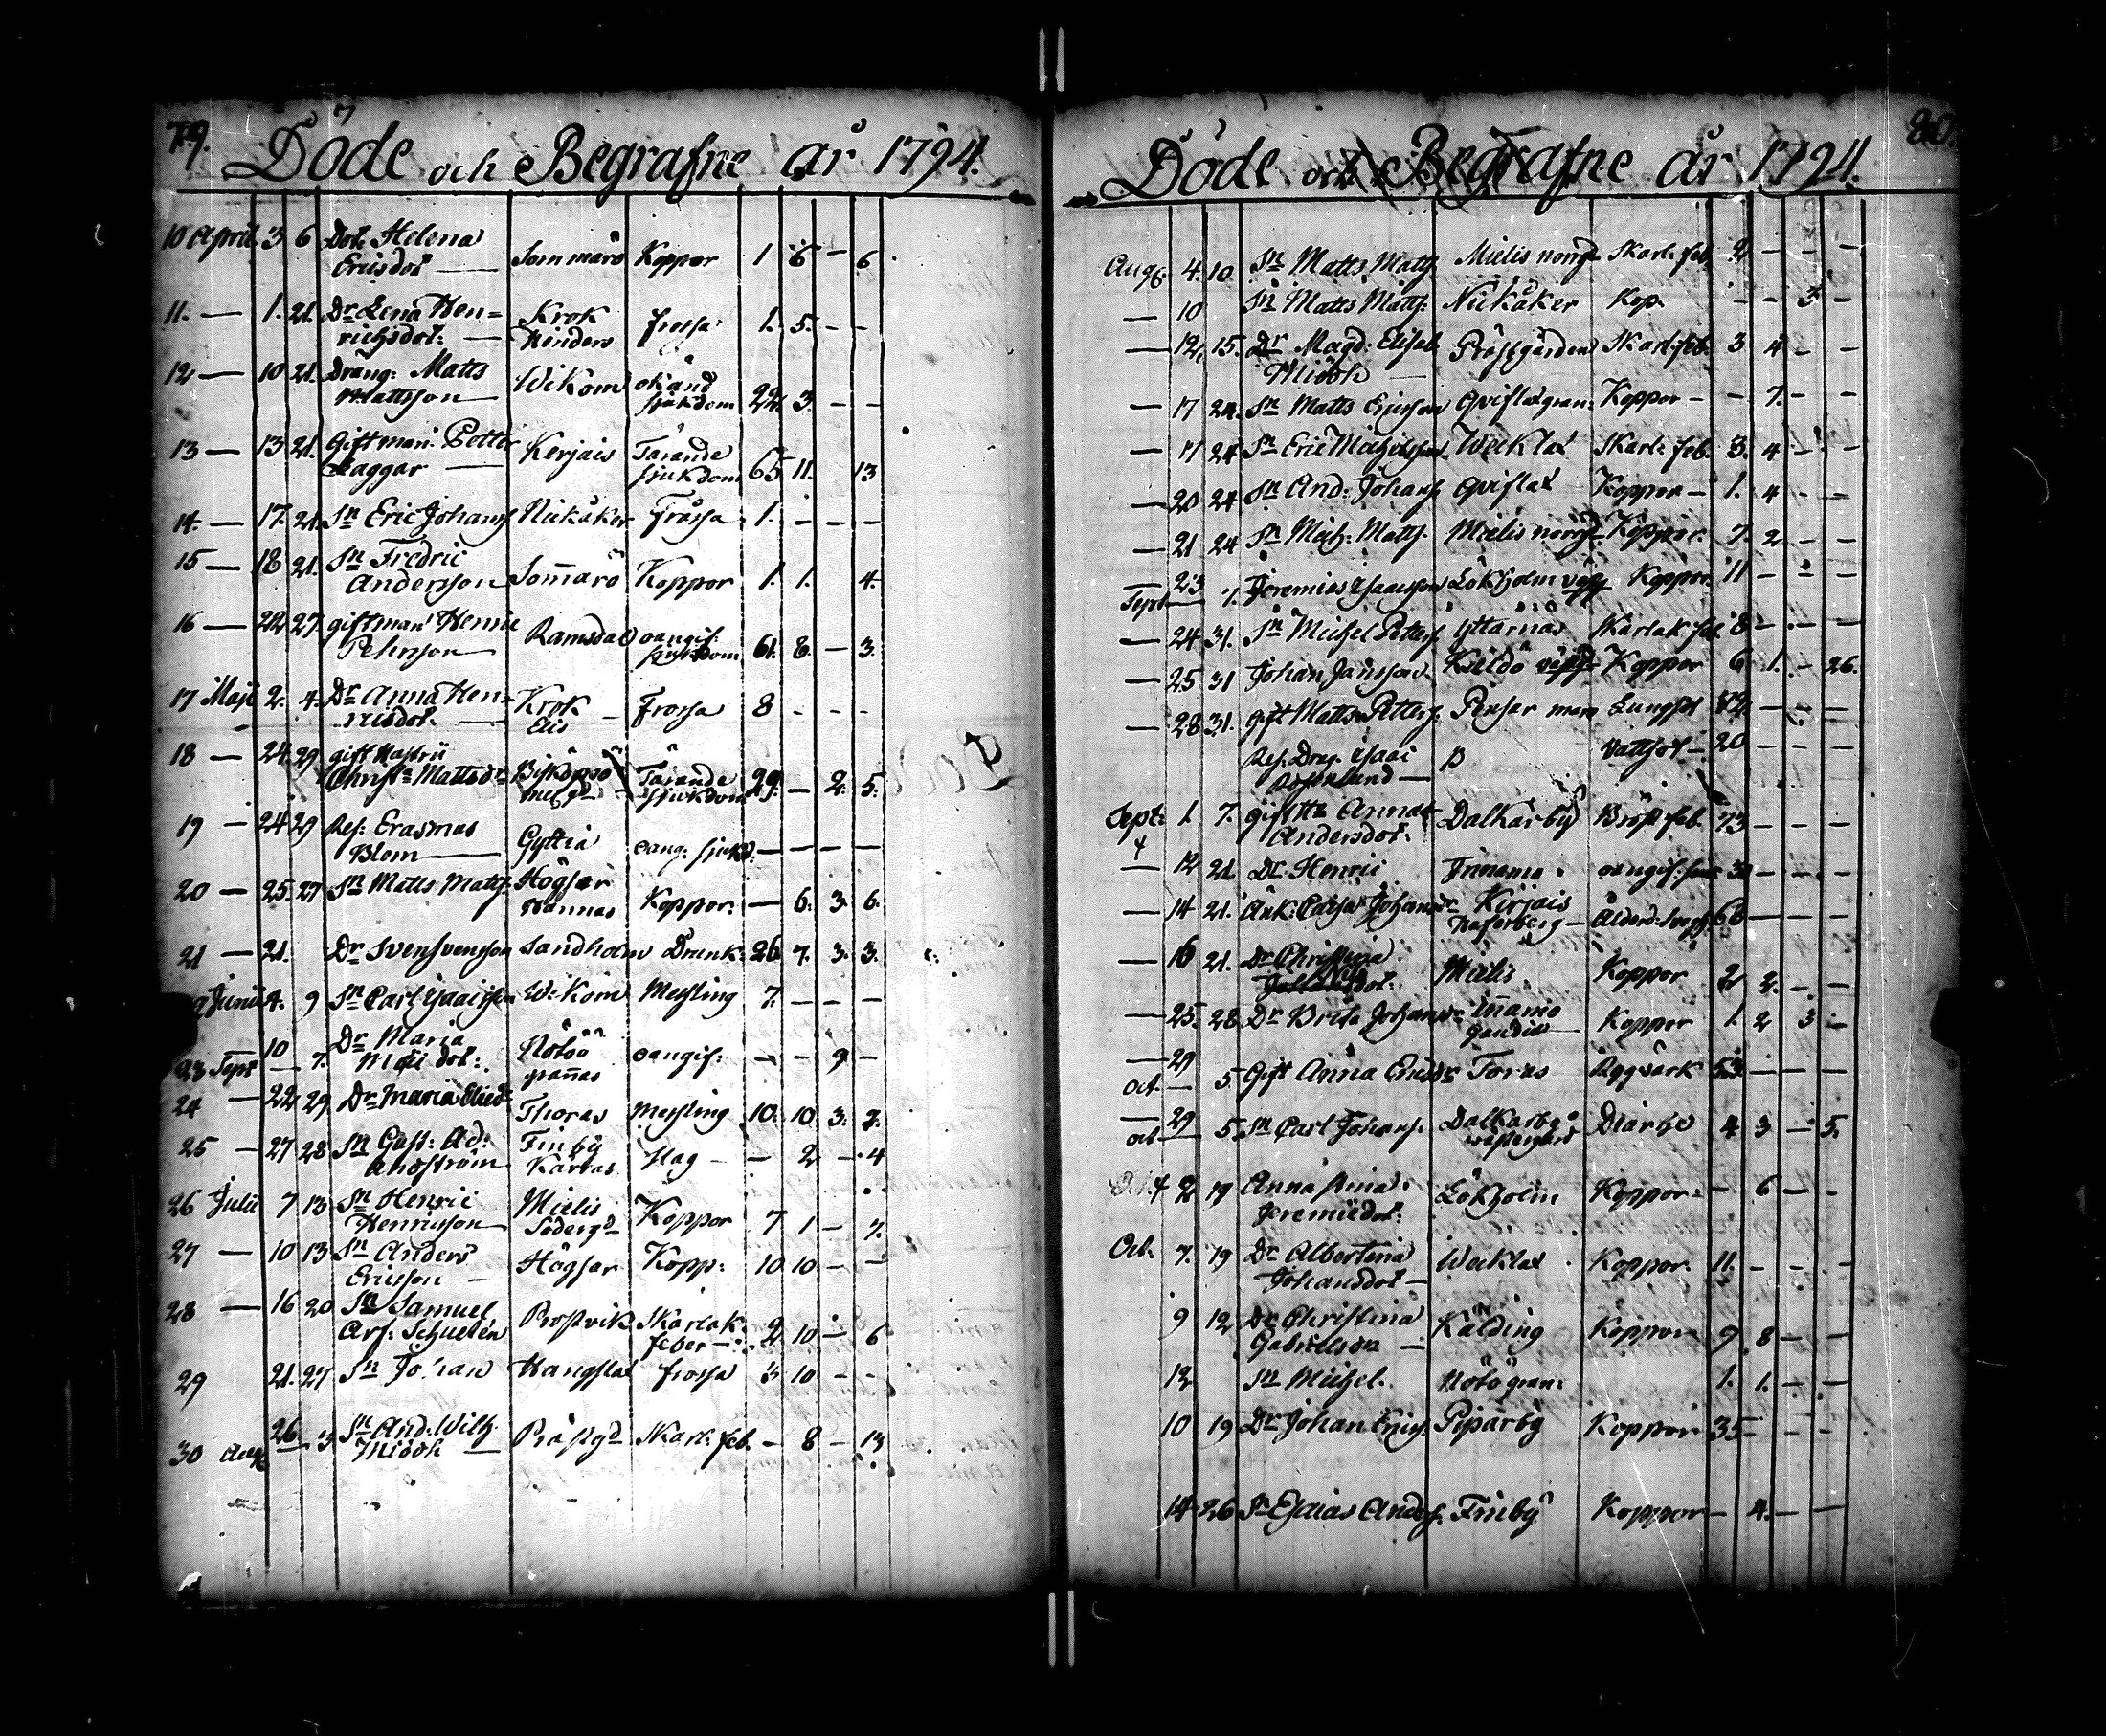 79.
Döde och Begrafne år 1794.
10 April 3 6 Dotr Helena Sommarö Koppor 1 6 — 6
Ericsdot —
11. — 1. 21. Dr Lena Hen= Krok frossa 1. 5. — —
richsdot: — Henders
12 — 10 21. Dräng: Matts Wikom okänd 22. 3. — —
Mattsson — sjukdom
13 — 13. 21. Giftman: Petter Kerjais Tärande 65 11. 13
Laggar — sjukdom
14. — 17. 21. Sn Eric Johanss Nickåker Fråssa 1. — — —
15 — 18 21. Sn Fredric
Andersson Sommarö Koppor 1. 1. 4.
16 — 22 27. giftman Henric Ramsdal oangif: 61. 8. — 3.
Pehrsson — sjukdom
17 Maji 2. 4. Dr Anna Hen= Krok — Frossa 8 - - -
ricsdot. — Elis
18 — 24. 29 gift Hustru
Christ: Mattsdr Biskopsö Tärande 29. — 2. 5.
sjukdom
19 — 24 29 Ref: Erasmus Gyttia oang: sjukd: — — — —
Blom —
20 — 25. 27 Sn Matts Matts: Högsar Koppor. — 6. 3. 6.
Hannas
21 — 21. Dr Sven Svensson Sandholm Drunk: 26 7. 3. 3.
Junii 4. 9 Sn Carl Isaacsson W: Kom Messling 7. — — —
10 Dr Maria Nötöö oangif: — — 9 —
23 Sept — 7. dot: grannas
24 — 22 29 Dr Maria Thoras Messling 10. 10 3. 2.
25 — 27 28 Sn Gust: Ad: Finby Slag — — 2 — 4
Kärras
26 Julii 7 13 Sn Henric Mielis Koppor 7 1 — 7.
Henricsson Södergd
27 — 10 13 Sn Anders Högsar Kopp: 10 10 — —
Ericsson —
28 — 16 20 Sn Samuel Prostvik Skarlak: 2 10 — 6
Arf: Schulén feber —
29 21. 27 Sn Johan Hangslax frossa 3 10 — —
30 Aug 26 3 Sn And: Wilh: Prästgd Skarl: feb. — 8 — 13
Miöök —
80.
Döde och Begrafne år 1794.
Aug: 4. 10 Sn Matts Matts Mielis norrg Skarl: feb. 2 — — —
— 10 Sn Matts Matts: Nickåker Kop. — — 3 —
— 12, 15. Dr Magd: Elisab. Prästgården Skarl: feb. 3 4 — —
Miöök —
— 17 24. Sn Matts Ericsson Qviflax gran: Koppor — — 7. — —
— 17 24 Sn Eric Michelsson Wecklax Skarl: feb. 3. 4 — —
— 20 24 Sn And: Johans Qviflax Koppor — 1. 4 - —
— 21 24 Sn Mich: Matts. Mielis norrg Koppor. 7. 2 — —
23
Sept — 7. Jeremias Isaacsson Lökholm Koppor. 11 — — —
— 24 31. Sn Michel Petters Yttärnäs Skarlak feb. 8 — — —
— 25 31 Johan Jansson Kieldö Koppor 6 1. — 26.
— 28 31. gift Matts Petters: Pensar Lungsot 42. — — —
Ref. Drag. Isaac B Vattsot — 20 — — —
Rosenlund —
Sept: 1. 7. gift Anna Dalkarby Bröst feb. 73 — — —
Andersdot:
— 12 21. Dr Henric oangif: 3 — — —
— 14 21. Änk: Caisa Johansdr Kirjais Ålderd: 66 — — —
— 16 21. Dr Christina Mielis Koppor 2 2. — —
dot:
— 25. 28 Dr Brita Johansdr Innamo Koppor 1. 2 3 —
— 29
Oct. — 5. Gift Anna Ericsdr Toras Ryggvärk 53. — — —
— 29
oct — 5 Sn Carl Johans. Dalkarby Diarhe 4 3 — 5.
wästergård
2 19 Anna Lökholm Koppor: — 6 — -
Jeremiedot:
Oct. 7. 19 Dr Albertina Wecklax Koppor. 11. - - -
Johansdot —
9 12 Dr Christina Kälding Koppor 9 8 — —
Gabrielsdr —
12 Sn Michel. Nötö gran: 1. 1. — —
10 19 Dr Johan Erics. Piparby Koppor 35 - - -
14 26 Sn Esaias Anders. Finby Koppor — 4. — —